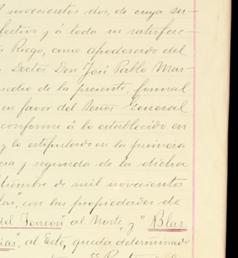 novecientos dos, de cuya su-
á toda su satisfac
Riego, como apoderado del
Doctor Don José Pablo Mar-
medio de la presente, formal
en favor del Señor General
conforme á lo establecido en
y lo estipulado en la primera
y segunda de la dicha
de mil novecientos
con las propiedades de
al Norte, y "Blas
al Este, queda determinado